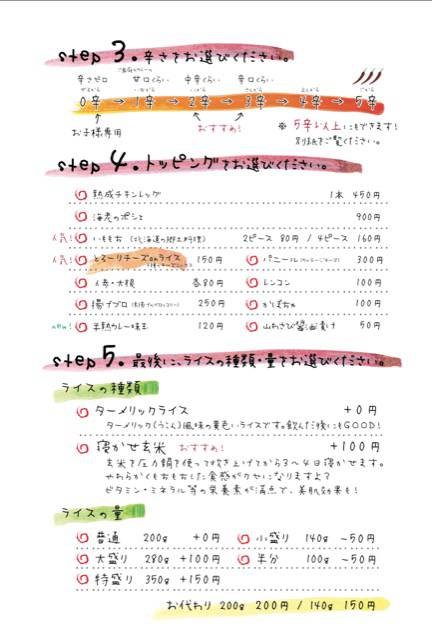 step 3. 辛さをお選びください。
辛さゼロ 甘口くらい 中辛くらい 辛口くらい
0辛 → 1辛 → 2辛 → 3辛 → 4辛 → 5辛
お子様専用 おすすめ! ※ 5辛以上にもできます!
別紙をご覧ください。
step 4. トッピングをお選びください。
熟成チキンレッグ 1本 450円
海老のポシェ 900円
人気! いももち (北海道の郷土料理) 2ピース 80円 / 4ピース 160円
人気! とろーりチーズonライス 150円 パニール 300円
人参・大根 各80円 レンコン 100円
揚げブロ 250円 かぼちゃ 100円
new! 半熟カレー味玉 120円 山わさび醤油漬け 50円
step 5. 最後に、ライスの種類・量をお選びください。
ライスの種類
ターメリックライス +0円
ターメリック(うこん)風味の黄色いライスです。飲んだ後にもGOOD!
寝かせ玄米 おすすめ! +100円
玄米を圧力鍋を使って炊き上げてから3〜4日寝かせます。
やわらかくもちもちした食感がクセになりますよ?
ビタミン・ミネラル等の栄養素が満点で、美肌効果も!
ライスの量
普通 200g +0円 小盛り 140g -50円
大盛り 280g +100円 半分 100g -50円
特盛り 350g +150円
お代わり 200g 200円 / 140g 150円